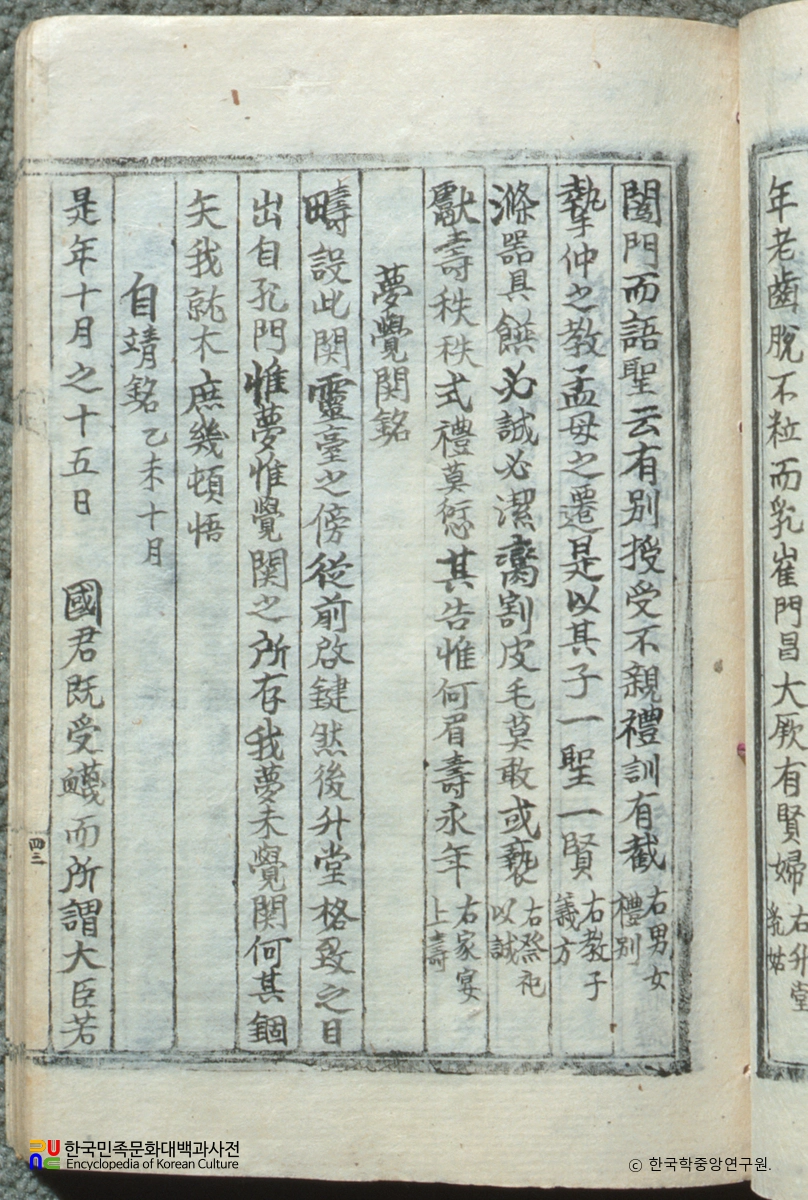 年老齒脫不粒而乳崔門昌大厥有賢婦 右升堂乳姑
闔門而語聖云有別授受不親禮訓有截 右男女禮別
摯仲之教孟母之遷是以其子一聖一賢 右教子義方
滌器具饌必誠必潔臠割皮毛莫敢或褻 右祭祀以誠
獻壽秩秩式禮莫愆其告惟何眉壽永年 右家宴上壽
夢覺関銘
疇設此関靈臺之傍從前啟鍵然後升堂格致之目
出自孔門惟夢惟覺関之所存我夢未覺関何其錮
矢我就木庶幾頓悟
自靖銘 乙未十月
是年十月之十五日 國君既受而所謂大臣若
四三
한국민족문화대백과사전
Encyclopedia of Korean Culture
© 한국학중앙연구원.